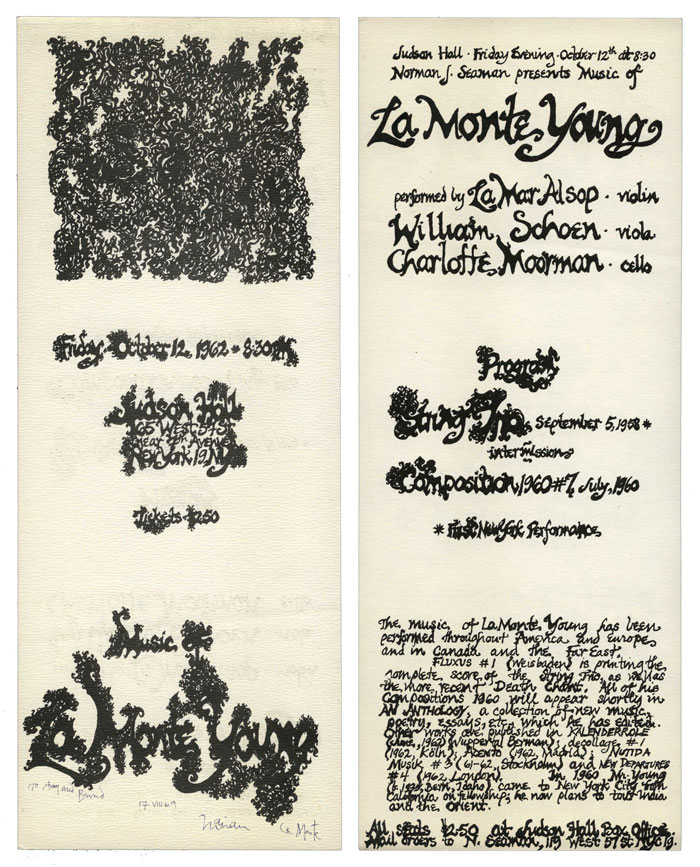 Friday October 12, 1962 * 8:30PM
Judson Hall
165 West 57 St
Near 7th Avenue
New York 19 NY
Tickets $2.50
Music of
La Monte Young
To Amy and
17 VIII 69
La Monte
Judson Hall · Friday Evening · October 12th at 8:30
Norman J. Seaman presents Music of
La Monte Young
performed by La Mar Alsop · violin
William Schoen · viola
Charlotte Moorman · cello
Program
String Trio September 5, 1958 *
intermission
Composition 1960 #7, July, 1960
* First New York Performance
The music of La Monte Young has been
performed throughout America and Europe,
and in Canada and the Far East.
FLUXUS #1 (Weisbaden) is printing the
complete score of the String Trio, as well as
the more recent Death Chant. All of his
Compositions 1960 will appear shortly in
AN ANTHOLOGY, a collection of new music,
poetry, essays, etc. which he has edited.
Other works are published in KALENDERROLLE
(June, 1962, Wuppertal, Germany); decollage #1
(1962, Köln); Acento (1962, Madrid); NUTIDA
Musik #3 (61-62, Stockholm) and NEW DEPARTURES
#4 (1962, London). In 1960 Mr. Young
(b 1935, Bern, Idaho) came to New York City from
California on fellowship; he now plans to tour India
and the Orient.
All seats $2.50 at Judson Hall Box Office.
Mail orders to N. Seaman, 119 West 57 St NYC 19.